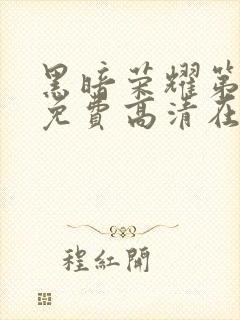 黑暗荣耀第
免费高清在
程红開